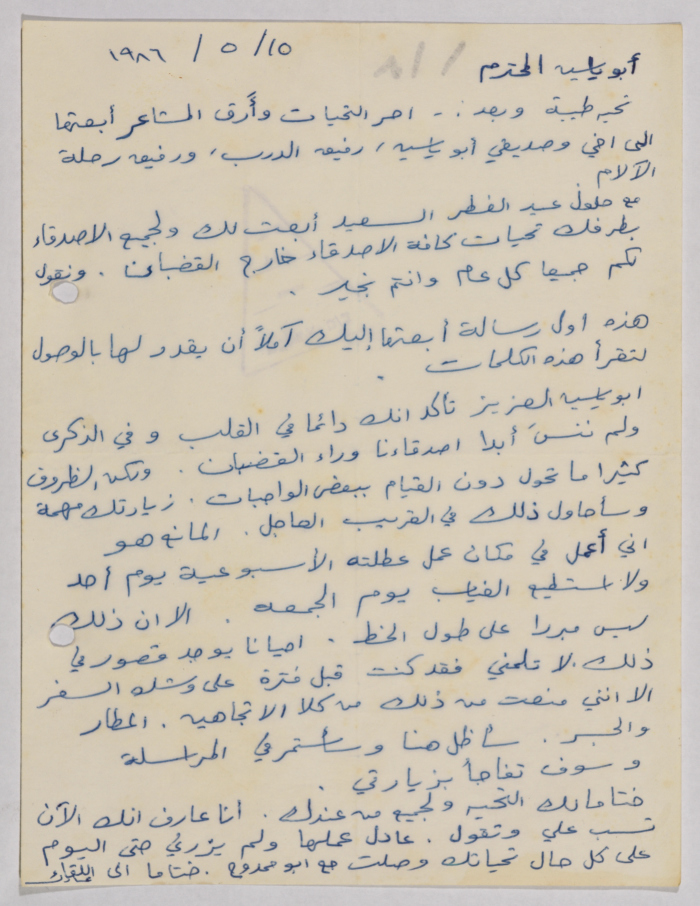 ١٩٨٦ / ٥ / ١٥
أبو ياسين المحترم
تحيه طيبة وبعد :- احر التحيات وأرق المشاعر أبعثها
الى اخي وصديقي أبو ياسين ، رفيق الدرب ، ورفيق رحلة
الآلام
مع حلول عيد الفطر السعيد أبعث لك ولجميع الاصدقاء
بطرفك تحيات كافة الاصدقاء خارج القضبان . ونقول
لكم جميعا كل عام وانتم بخير .
هذه اول رسالة أبعثها إليك آملاً أن يقدر لها بالوصول
لتقرأ هذه الكلمات .
ابو ياسين العزيز تأكد انك دائما في القلب وفي الذكرى
ولم ننسَ أبدا اصدقاءنا وراء القضبان . ولكن الظروف
كثيرا ما تحول دون القيام ببعض الواجبات . زيارتك مهمة
وسأحاول ذلك في القريب العاجل . المانع هو
اني أعمل في مكان عمل عطلته الأسبوعية يوم أحد
ولا استطيع الغياب يوم الجمعه . الا ان ذلك
ليس مبررا على طول الخط . احيانا يوجد قصور في
ذلك . لا تلمني فقد كنت قبل فترة على وشك السفر
الا انني منعت من ذلك من كلا الاتجاهين . المطار
والجسر . سأظل هنا وسأستمر في المراسلة
وسوف تفاجأ بزيارتي .
ختاما لك التحيه ولجميع من عندك . أنا عارف انك الآن
تسب علي وتقول . عادل عملها ولم يزرني حتى اليوم
على كل حال تحياتك وصلت مع ابو ممدوح . ختاما الى اللقاء